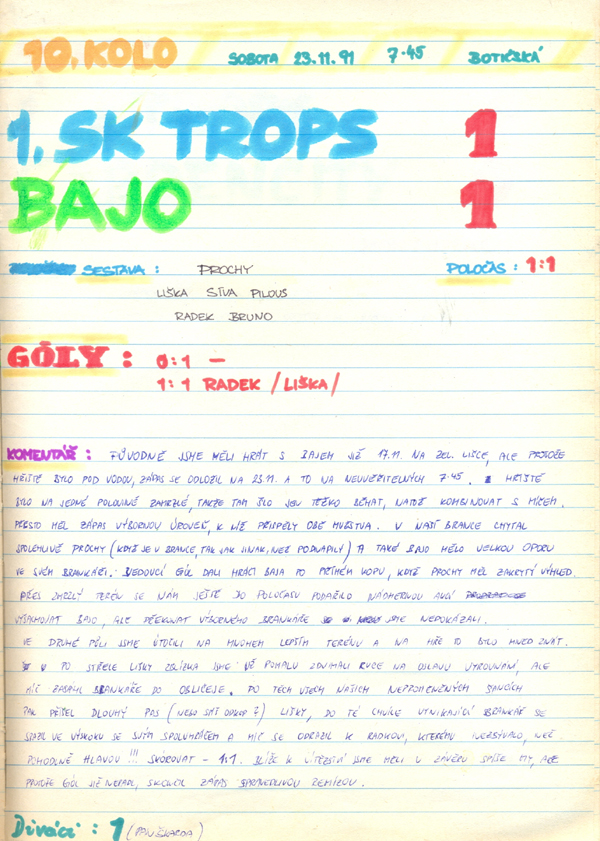 10. KOLO SOBOTA 23.11.91 7.45 BOTIČSKÁ
1. SK TROPS 1
BAJO 1
SESTAVA : PROCHY POLOČAS : 1:1
LIŠKA SÍVA PILOUS
RADEK BRUNO
GÓLY : 0:1 —
1:1 RADEK /LIŠKA/
KOMENTÁŘ : PŮVODNĚ JSME MĚLI HRÁT S BAJEM JIŽ 17.11. NA ZEL. LIŠCE, ALE PROTOŽE
HŘIŠTĚ BYLO POD VODOU, ZÁPAS SE ODLOŽIL NA 23.11. A TO NA NEUVĚŘITELNÝCH 7.45. HŘIŠTĚ
BYLO NA JEDNÉ POLOVINĚ ZAMRZLÉ, TAKŽE TAM ŠLO JEN TĚŽKO BĚHAT, NATOŽ KOMBINOVAT S MÍČEM.
PŘESTO MĚL ZÁPAS VÝBORNOU ÚROVEŇ, K NÍŽ PŘISPĚLY OBĚ MUŽSTVA. V NAŠÍ BRANCE CHYTAL
SPOLEHLIVĚ PROCHY (KDYŽ JE V BRANCE, TAK JAK JINAK, NEŽ PODNAPILÝ) A TAKÉ BAJO MĚLO VELKOU OPORU
VE SVÉM BRANKÁŘI. VEDOUCÍ GÓL DALI HRÁČI BAJA PO PŘÍMÉM KOPU, KDYŽ PROCHY MĚL ZAKRYTÝ VÝHLED.
PŘES ZMRZLÝ TERÉN SE NÁM JEŠTĚ DO POLOČASU PODAŘILO NÁDHERNOU AKCÍ
VYŠACHOVAT BAJO, ALE PŘEKONAT VÝBORNÉHO BRANKÁŘE JSME NEDOKÁZALI.
VE DRUHÉ PŮLI JSME ÚTOČILI NA MNOHEM LEPŠÍM TERÉNU A NA HŘE TO BYLO HNED ZNÁT.
PO STŘELE LIŠKY ZBLÍZKA JSME UŽ POMALU ZDVIHALI RUCE NA OSLAVU VYROVNÁNÍ, ALE
MÍČ ZASÁHL BRANKÁŘE DO OBLIČEJE. PO TĚCH VŠECH NAŠICH NEPROMĚNĚNÝCH ŠANCÍCH
PAK PŘIŠEL DLOUHÝ PAS (NEBO SNAD ODKOP ?) LIŠKY, DO TÉ CHVÍLE VYNIKAJÍCÍ BRANKÁŘ SE
SRAZIL VE VÝSKOKU SE SVÝM SPOLUHRÁČEM A MÍČ SE ODRAZIL K RADKOVI, KTERÉMU NEZBÝVALO, NEŽ
POHODLNĚ HLAVOU !!! SKÓROVAT - 1:1. BLÍŽE K VÍTĚZSTVÍ JSME MĚLI V ZÁVĚRU SPÍŠE MY, ALE
PROTOŽE GÓL JIŽ NEPADL, SKONČIL ZÁPAS SPRAVEDLIVOU REMÍZOU.
Diváci : 1 (PANÍ ŠKARDA)